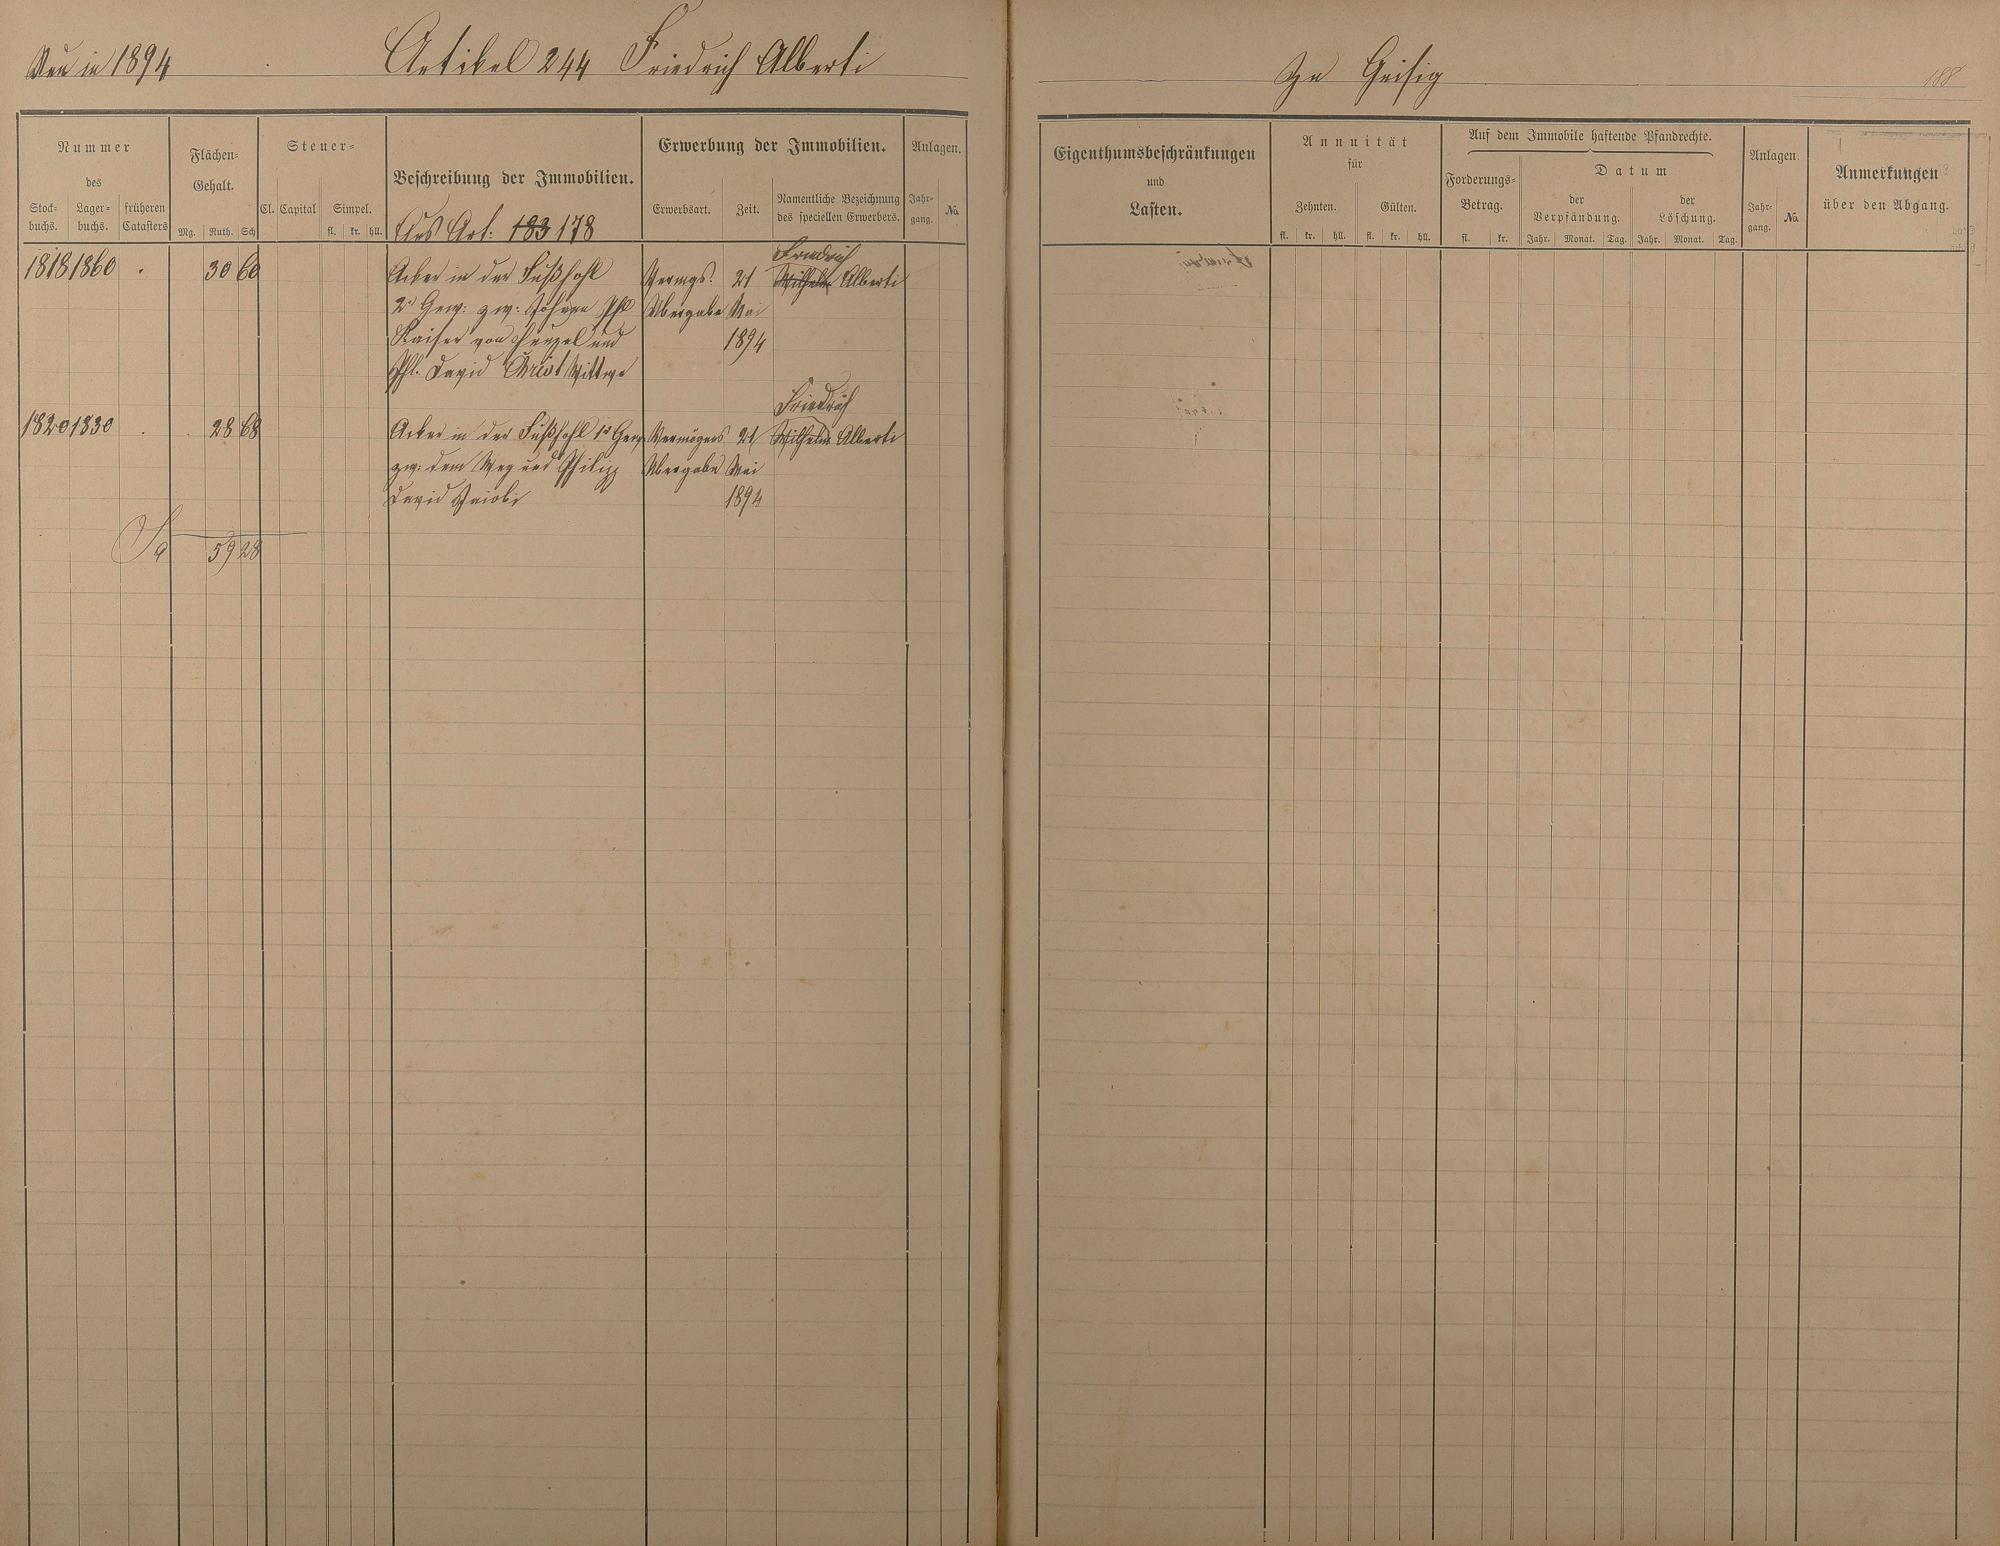 Neu in 1894
Artikel 244 Friedrich Alberti
zu Geisig
188
Nummer
des
Stock-
buchs.
Lager-
buchs.
früheren
Catasters
Flächen-
Gehalt.
Mg. Ruth. Sch
Steuer-
Cl. Capital
Simpel.
fl. kr. hll.
Beschreibung der Immobilien.
Aus Art: 183 178
Erwerbung der Immobilien.
Erwerbsart.
Zeit.
Namentliche Bezeichnung
des speciellen Erwerbers.
Anlagen.
Jahr-
gang.
No.
1818 1860 . 30 60
Acker in der Fußhohl
2r Gew: zw: Johann Phl
Kaiser von und
Phl. David Christ Wittwe
Vermgs.
Übergabe
21
Mai
1894
Friedrich
Wilhelm Alberti
1820 1830 . 28 68
Acker in der Fußhohl 1r Gew
zw: dem Weg und Philipp
David
Vermögens
Übergabe
21
Mai
1894
Friedrich
Wilhelm Alberti
Sa 59 28
Eigenthumsbeschränkungen
und
Lasten.
Annuität
für
Zehnten.
Gülten.
fl. kr. hll. fl. kr. hll.
Auf dem Immobile haftende Pfandrechte.
Forderungs-
Betrag.
fl. kr.
Datum
der
Verpfändung.
Jahr. Monat. Tag.
der
Löschung.
Jahr. Monat. Tag.
Anlagen.
Jahr-
gang.
No.
Anmerkungen
über den Abgang.